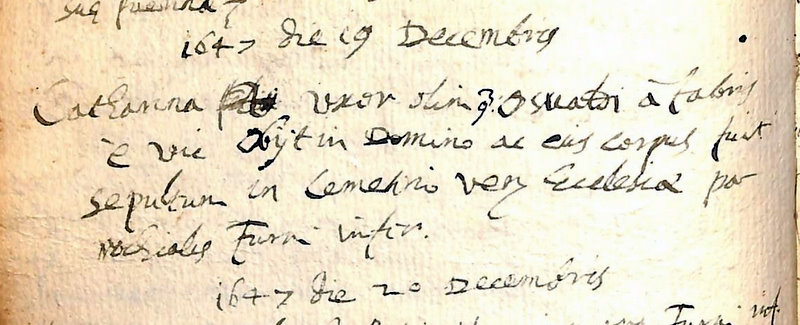 suæ
1647 die 19 Decembris
Catharina uxor olim Osualdi à fabris
e vic obijt in Domino ac eius corpus fuit
sepultum in Cemeterio Ecclesiæ par
rochialis Furni infer.
1647 die 20 Decembris
Furni inf.